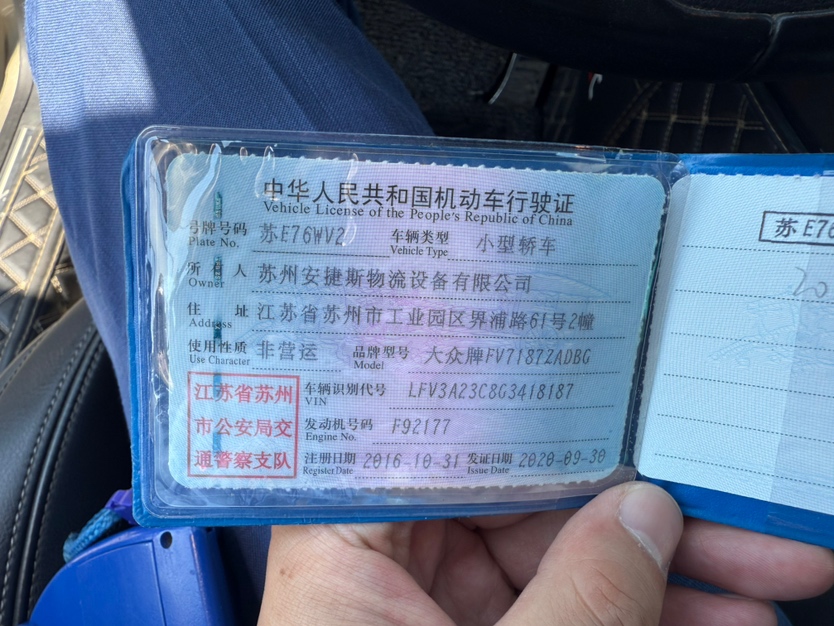 中华人民共和国机动车行驶证
Vehicle License of the People's Republic of China
号牌号码 苏E76WV2 车辆类型 小型轿车
Plate No. Vehicle Type
所有人 苏州安捷斯物流设备有限公司
Owner
住址 江苏省苏州市工业园区界浦路61号2幢
Address
使用性质 非营运 品牌型号 大众牌FV7187ZADBG
Use Character Model
江苏省苏州
市公安局交
通警察支队
车辆识别代号 LFV3A23C8G3418187
VIN
发动机号码 F92177
Engine No.
注册日期 2016-10-31 发证日期 2020-09-30
Register Date Issue Date
苏E76
20